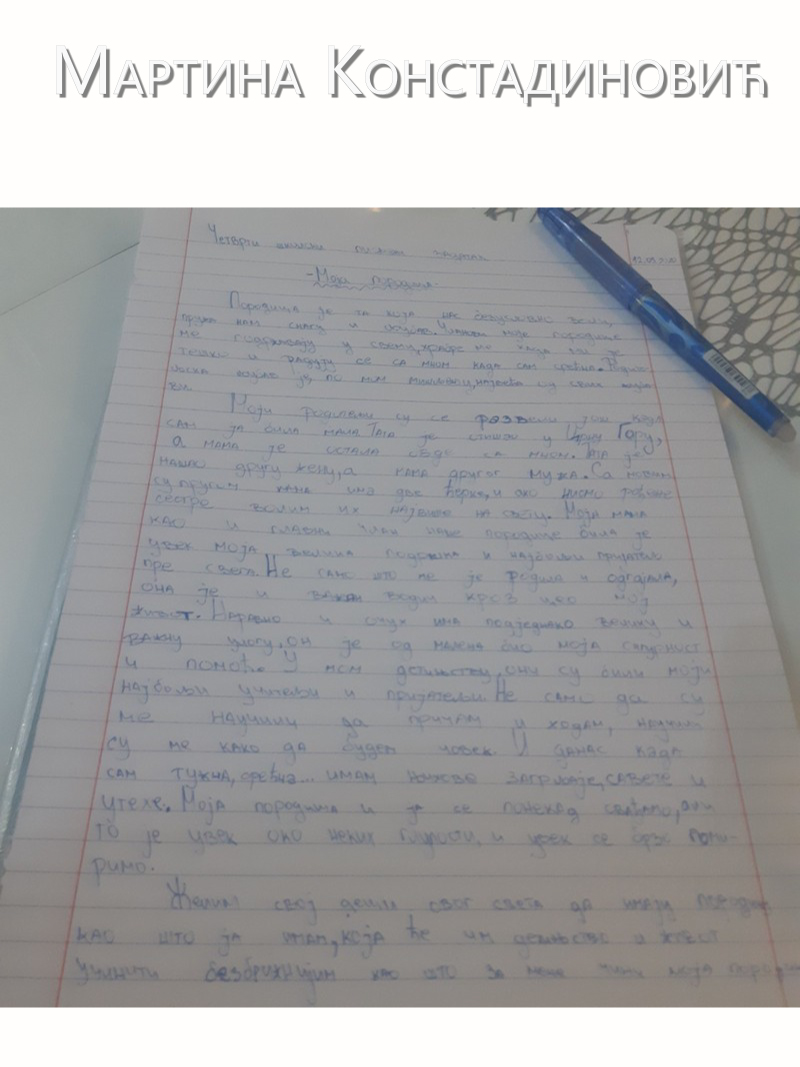 Мартина Констадиновић
Четврти школски писмени задатак
12.05.
-Моја породица-
Породица је та која нас безусловно воли,
пружа нам снагу и Чланови моје породице
ме подржавају у свему, када ми је
тешко и радују се са мном када сам срећна.
љубав је, по мом мишљењу, највећа од свих
Моји родитељи су се развели још када
сам ја била мала. Тата је отишао у Црну Гору,
а мама је остала овде са мном. Тата је
нашао другу жену, а мама другог мужа. Са новим
супругом мама има две ћерке, и ако нисмо рођене
сестре волим их највише на свету. Моја мама
као и главни члан наше породице била је
увек моја велика подршка и најбољи пријатељ
пре свега. Не само што ме је родила и одгајала,
она је и важан водич кроз цео мој
живот. Наравно и очух има подједнако велику и
важну улогу, он је од малена био моја сигурност
и помоћ. У мом детињству, они су били моји
најбољи учитељи и пријатељи. Не само да су
ме научили да причам и ходам, научили
су ме како да будем човек. И данас када
сам тужна, срећна... имам њихове загрљаје, савете и
утехе. Моја породица и ја се понекад свађамо, али
то је увек око неких глупости, и увек се брзо поми-
римо.
Желим свој деци овог света да имају породицу
као што ја имам, која ће им детињство и живот
учинити безбрижнијим као што за мене чини моја породица